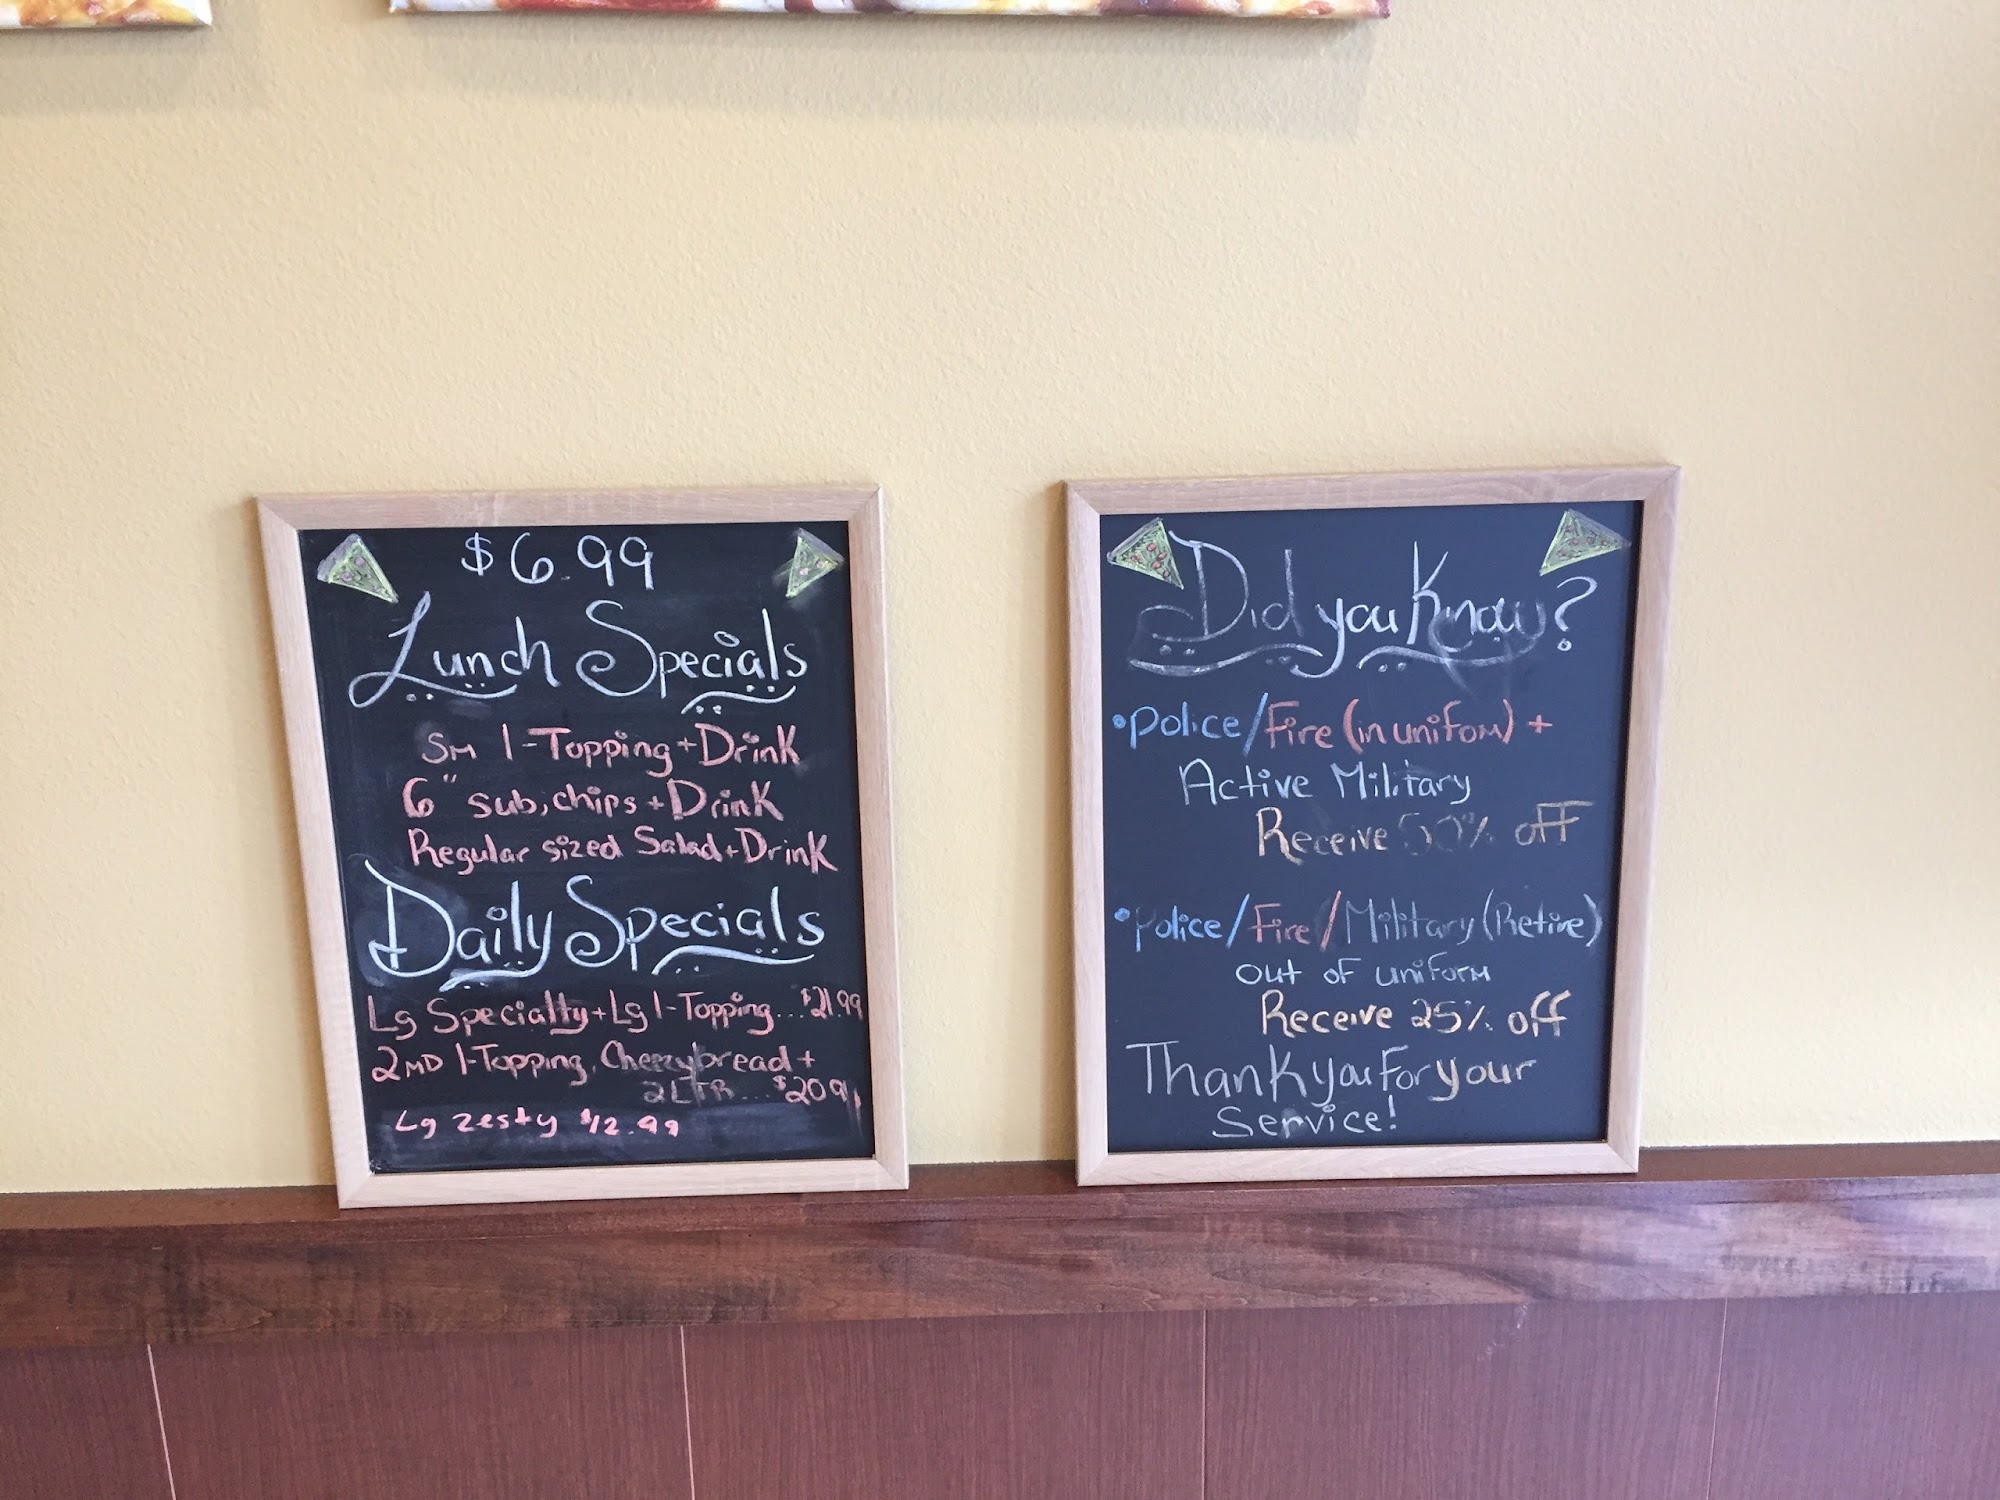 $6.99
Lunch Specials
SM 1-Topping + Drink
6" sub, chips + Drink
Regular sized Salad + Drink
Daily Specials
Lg Specialty + Lg 1-Topping... $21.99
2 MD 1-Topping, Cheezybread +
2 LTR...
Lg zesty $12.99
Did you Know?
• Police/Fire (in unifom) +
Active Military
Receive 50% off
• Police/Fire/Military (Retire)
out of uniform
Receive 25% off
Thank you For your
Service!